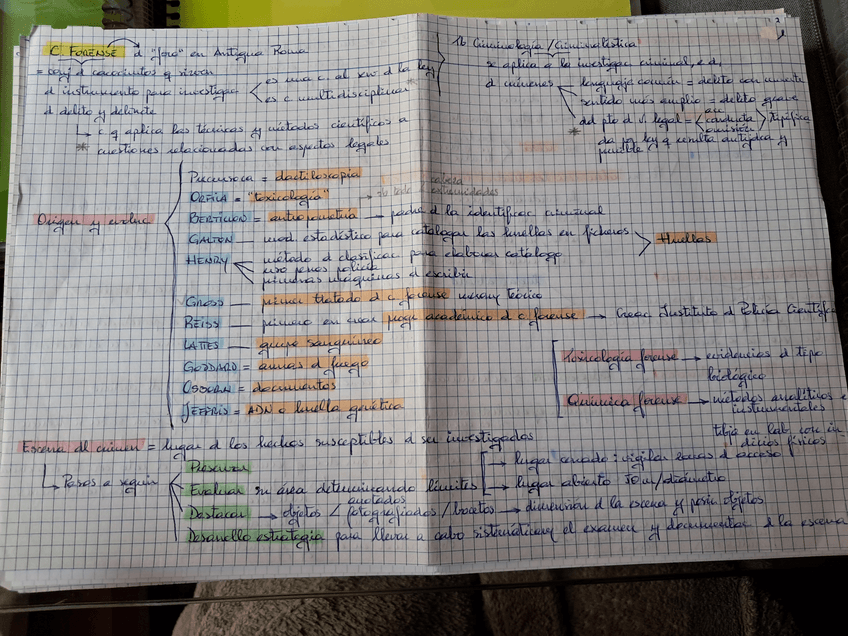 C. FORENSE d "foro" en Antigua Roma
= conj d cococimtos q sirven
d instrumento para investigac
d delito y delincte
es una c. al serv d la ley
es c multidisciplinar
↳ c q aplica las técnicas y métodos científicos a
* cuestiones relacionadas con aspectos legales
Criminología / Criminalística
se aplica a la investigac criminal, e d,
d crímenes
lenguaje común = delito con muerte
sentido más amplio = delito grave
* del pto d v. legal = conducta omisión tipifica
da x ley q resulta antijdca y
punible
Origen y evoluc
Precursora = dactiloscopia
ORFILA = "toxicología"
BERTILLON = antropometría → padre d la identificac criminal
GALTON — mod. estadístico para catalogar las huellas en ficheros
Huellas
HENRY método d clasificac para elaborar catálogo
primeras máquinas d escribir
GROSS — primer tratado d c. forense
REISS — primero en crear progr académico d c forense → Creac Instituto d Policía Científica
LATTES — grupo sanguíneo
GODDARD = armas d fuego
OSBORN = documentos
JEFFRIS = ADN o huella genética
Toxicología forense → evidencias d tipo
biológico
Química forense → métodos analíticos e
instrumentales
tbja en lab. con in-
dicios físicos
Escena del crimen = lugar d los hechos susceptibles d ser investigados
↳ Pasos a seguir
Preservar
Evaluar su área determinando límites
→ lugar cerrado: vigilar zonas d acceso
→ lugar abierto 50m/diámetro
Destacar → objetos
anotados
fotografiados / bocetos → dimensión d la escena y posic objetos
Desarrollo estrategia para llevar a cabo sistemáticamte el examen y documentac d la escena